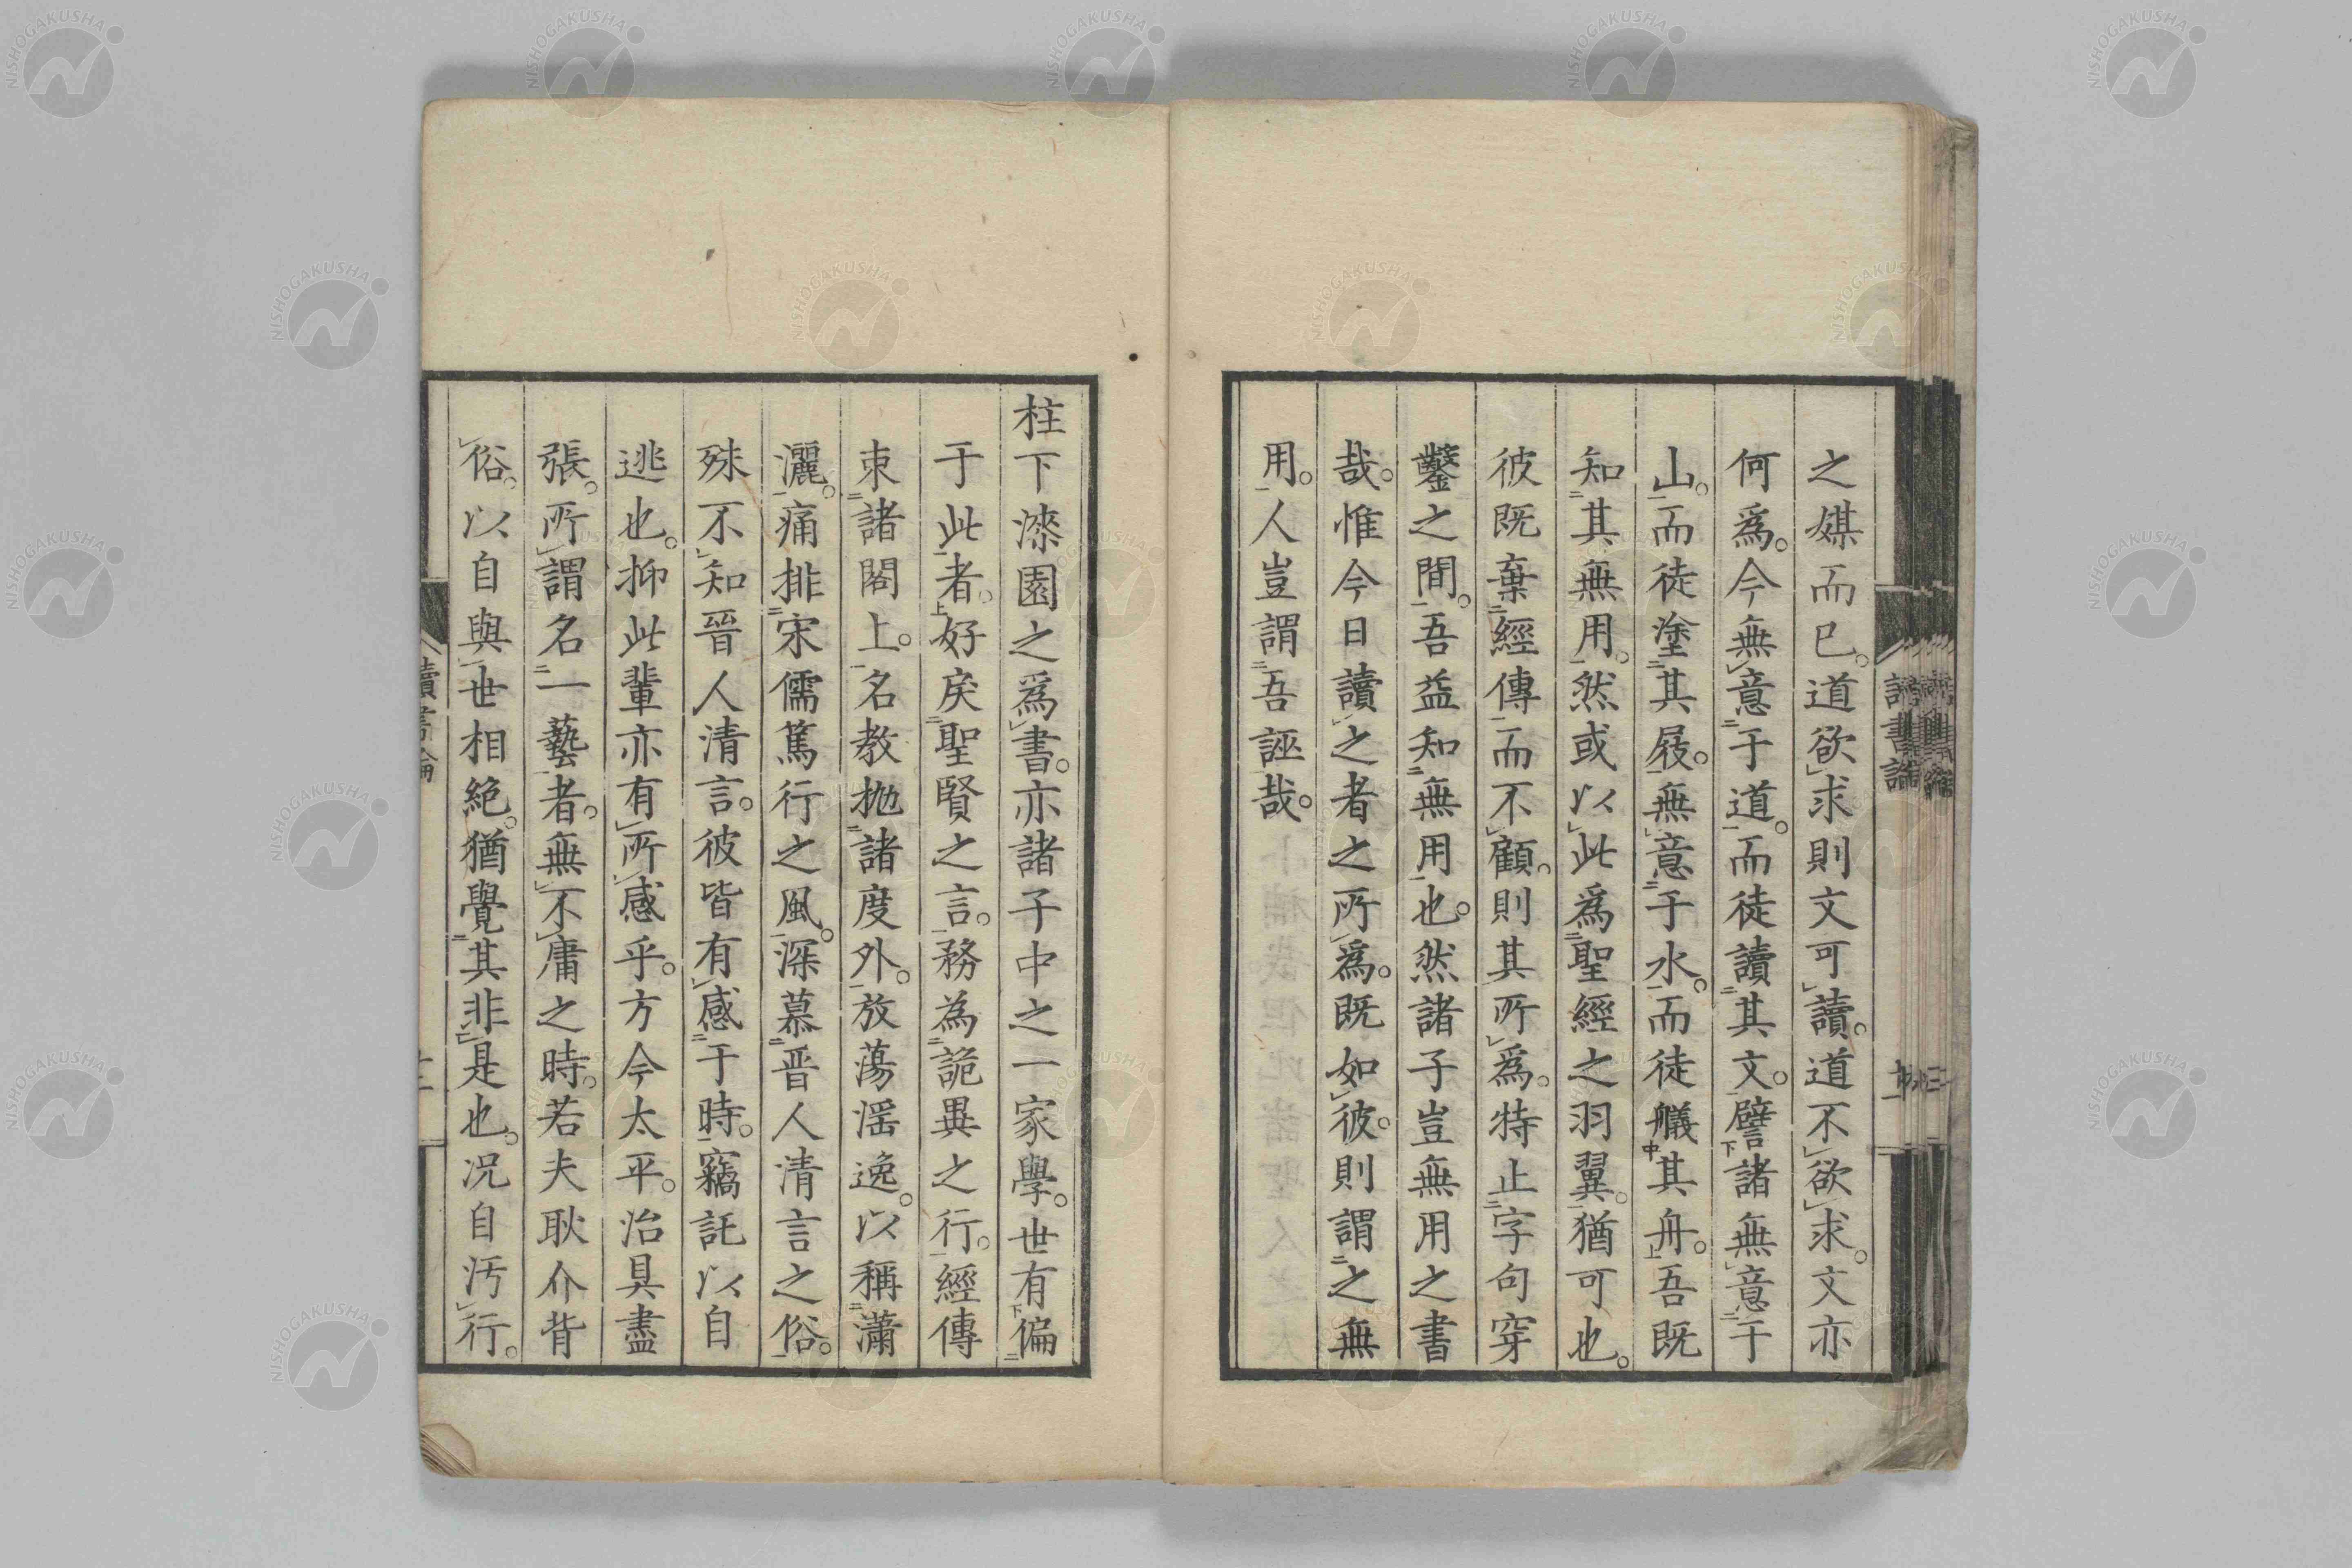 之媒而已。道欲求則文可讀。道不欲求。文亦
何爲。今無意于道。而徒讀其文。譬諸無意于
山。而徒塗其屐。無意于水。而徒艤其舟。吾既
知其無用。然或以此爲聖經之羽翼。猶可也。
彼既棄經傳而不顧。則其所爲。特止字句穿
鑿之間。吾益知無用也。然諸子豈無用之書
哉。惟今日讀之者之所爲。既如彼。則謂之無
用。人豈謂吾誣哉。
柱下漆園之爲書。亦諸子中之一家學。世有偏
于此者。好戾聖賢之言。務為詭異之行。經傳
束諸閣上。名教抛諸度外。放蕩滛逸。以稱瀟
灑。痛排宋儒篤行之風。深慕晋人清言之俗。
殊不知晉人清言。彼皆有感于時。竊託以自
逃也。抑此輩亦有所感乎。方今太平。治具盡
張。所謂名一藝者。無不庸之時。若夫耿介背
俗。以自與世相絶。猶覺其非是也。况自汚行。
讀書論
NISHOGAKUSHA